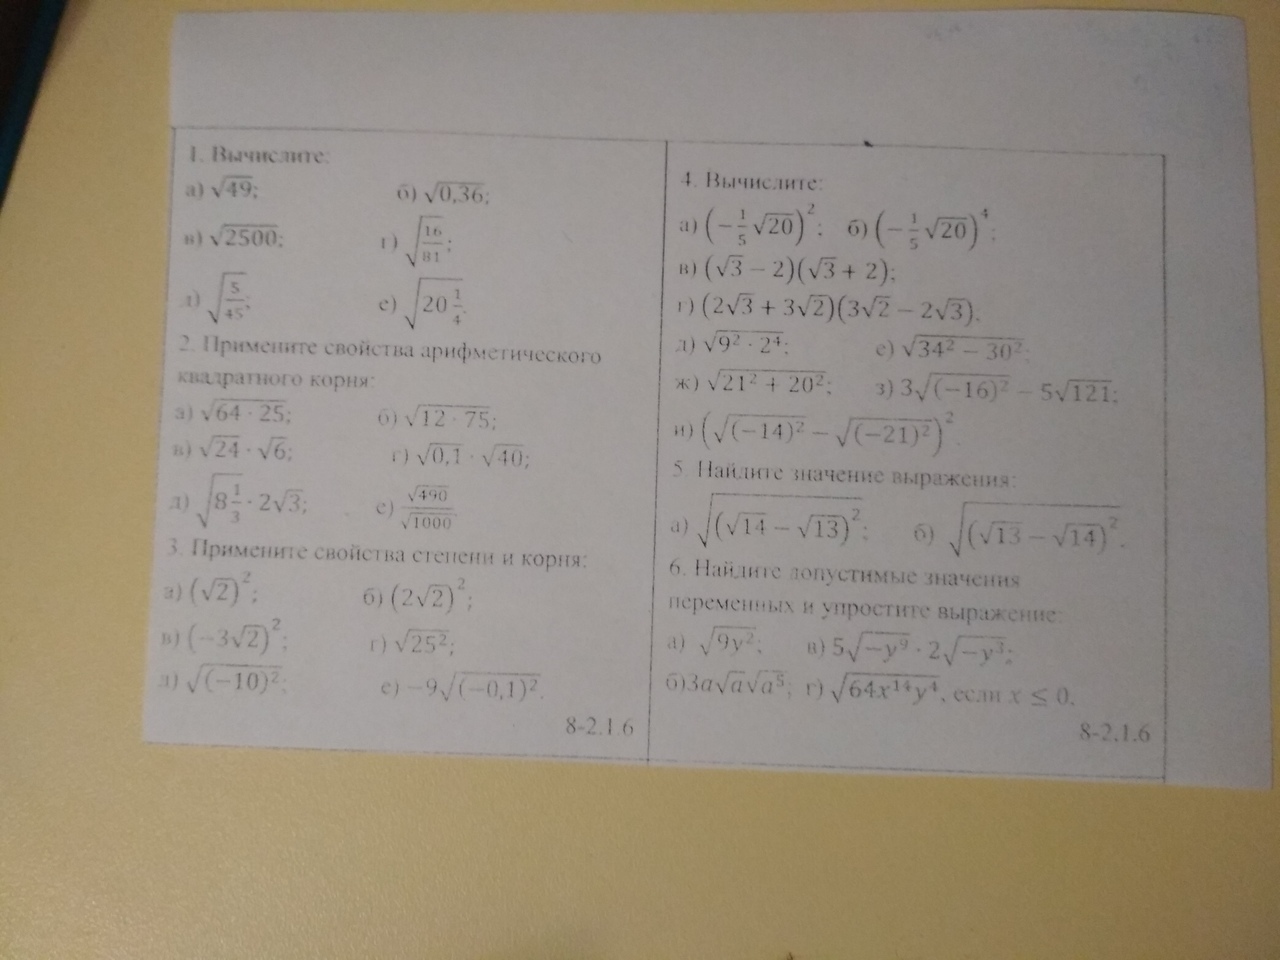 1. Вычислите:
а) √49; б) √0,36;
в) √2500; г) √(16/81);
д) √(5/45); е) √(20 1/4).
2. Примените свойства арифметического
квадратного корня:
а) √(64 · 25); б) √(12 · 75);
в) √24 · √6; г) √0,1 · √40;
д) √(8 1/3) · 2√3; е) √490/√1000
3. Примените свойства степени и корня:
а) (√2)²; б) (2√2)²;
в) (−3√2)²; г) √(25²);
д) √((−10)²); е) −9√((−0,1)²).
8-2.1.6
4. Вычислите:
а) (−1/5 √20)²; б) (−1/5 √20)⁴;
в) (√3 − 2)(√3 + 2);
г) (2√3 + 3√2)(3√2 − 2√3).
д) √(9² · 2⁴); е) √(34² − 30²);
ж) √(21² + 20²); з) 3√((−16)²) − 5√121;
и) (√((−14)²) − √((−21)²))².
5. Найдите значение выражения:
а) √((√14 − √13)²); б) √((√13 − √14)²).
6. Найдите допустимые значения
переменных и упростите выражение:
а) √(9y²); в) 5√(−y⁹) · 2√(−y³);
б)3a√a√(a⁵); г) √(64x¹⁴y⁴), если x ≤ 0.
8-2.1.6